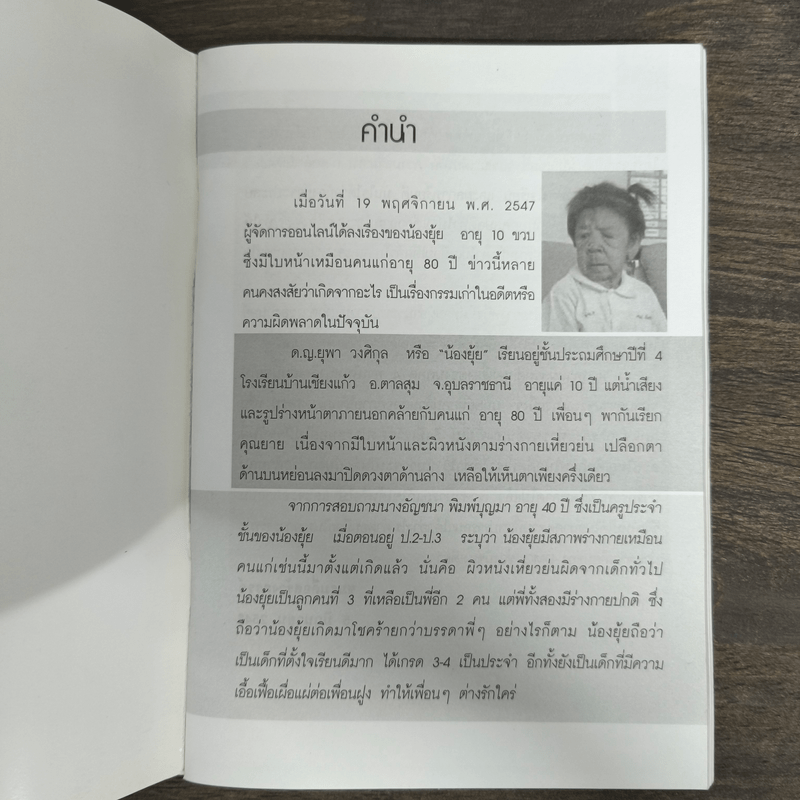 คำนำ
เมื่อวันที่ 19 พฤศจิกายน พ.ศ. 2547
ผู้จัดการออนไลน์ได้ลงเรื่องของน้องยุ้ย อายุ 10 ขวบ
ซึ่งมีใบหน้าเหมือนคนแก่อายุ 80 ปี ข่าวนี้หลาย
คนคงสงสัยว่าเกิดจากอะไร เป็นเรื่องกรรมเก่าในอดีตหรือ
ความผิดพลาดในปัจจุบัน
ด.ญ.ยุพา วงศิกุล หรือ "น้องยุ้ย" เรียนอยู่ชั้นประถมศึกษาปีที่ 4
โรงเรียนบ้านเชียงแก้ว อ.ตาลสุม จ.อุบลราชธานี อายุแค่ 10 ปี แต่น้ำเสียง
และรูปร่างหน้าตาภายนอกคล้ายกับคนแก่ อายุ 80 ปี เพื่อนๆ พากันเรียก
คุณยาย เนื่องจากมีใบหน้าและผิวหนังตามร่างกายเหี่ยวย่น เปลือกตา
ด้านบนหย่อนลงมาปิดดวงตาด้านล่าง เหลือให้เห็นตาเพียงครึ่งเดียว
จากการสอบถามนางอัญชนา พิมพ์บุญมา อายุ 40 ปี ซึ่งเป็นครูประจำ
ชั้นของน้องยุ้ย เมื่อตอนอยู่ ป.2-ป.3 ระบุว่า น้องยุ้ยมีสภาพร่างกายเหมือน
คนแก่เช่นนี้มาตั้งแต่เกิดแล้ว นั่นคือ ผิวหนังเหี่ยวย่นผิดจากเด็กทั่วไป
น้องยุ้ยเป็นลูกคนที่ 3 ที่เหลือเป็นพี่อีก 2 คน แต่พี่ทั้งสองมีร่างกายปกติ ซึ่ง
ถือว่าน้องยุ้ยเกิดมาโชคร้ายกว่าบรรดาพี่ๆ อย่างไรก็ตาม น้องยุ้ยถือว่า
เป็นเด็กที่ตั้งใจเรียนดีมาก ได้เกรด 3-4 เป็นประจำ อีกทั้งยังเป็นเด็กที่มีความ
เอื้อเฟื้อเผื่อแผ่ต่อเพื่อนฝูง ทำให้เพื่อนๆ ต่างรักใคร่